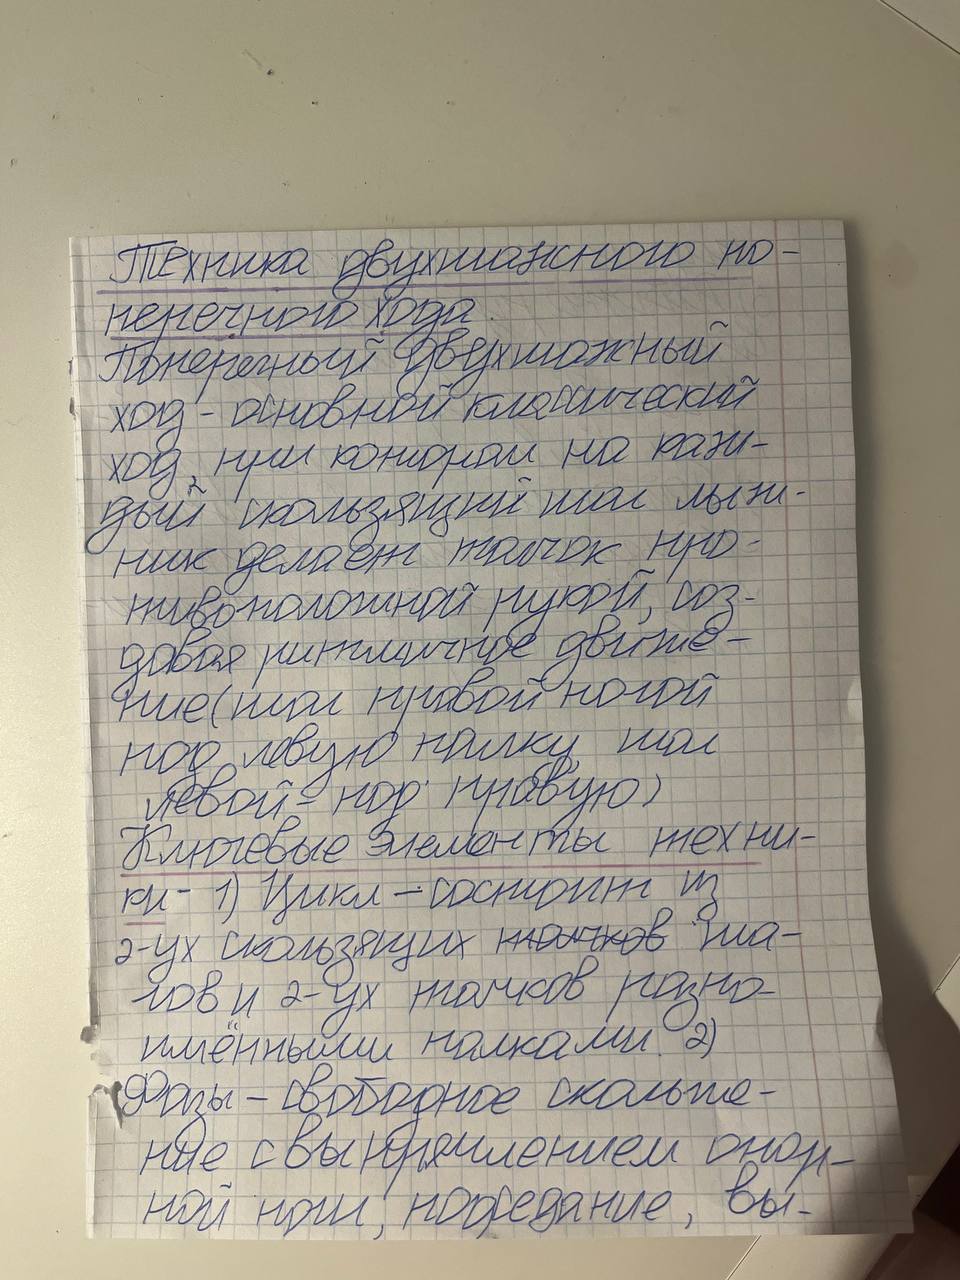 Техника двухшажного по-
перечного хода
Поперечный двухшажный
ход - основной классический
ход, при котором на каж-
дый скользящий шаг лыж-
ник делает толчок про-
тивоположной рукой, соз-
давая ритмичное движе-
ние (шаг правой ногой
под левую палку, шаг
левой - под правую)
Ключевые элементы техни-
ки - 1) Цикл - состоит из
2-ух скользящих толчков ша-
гов и 2-ух толчков разно-
имёнными палками. 2)
Фазы - свободное скольже-
ние с выпрямлением опор-
ной ноги, подседание, вы-